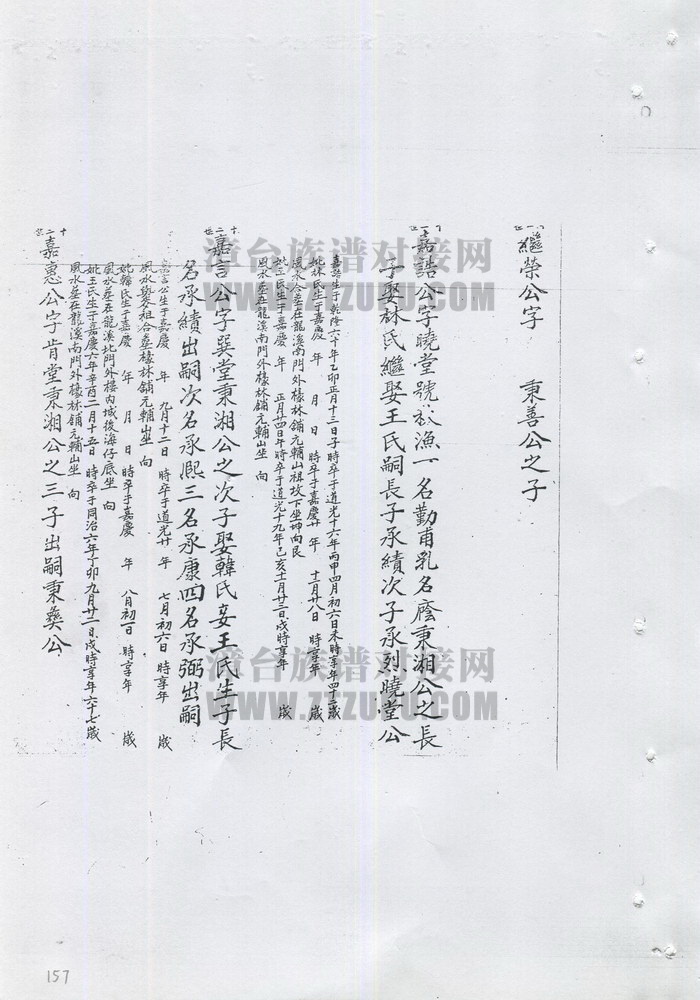 繼榮公字 秉善公之子
嘉誥公字曉堂號 漁一名勤甫乳名 秉湘公之長
子娶林氏繼娶王氏嗣長子承績次子承烈曉堂公
嘉誥生于乾隆六十年乙卯正月十三日子時卒于道光十六年丙申四月初六日未時享年四十二歲
妣林氏生于嘉慶 年 月 日 時卒于嘉慶廿 年 十二月廿八日 時享年 歲
風水合葬在龍溪南門外椽林舖元輔山祖坟下坐坤向艮
妣王氏生于嘉慶 年 正月廿四日 時卒于道光十九年己亥十一月廿三日戌時享年 歲
風水葬在龍溪南門外椽林舖元輔山坐 向
嘉言公字巽堂秉湘公之次子娶韓氏妾王氏生子長
名承績出嗣次名承熙三名承康四名承弼出嗣
嘉言公生于嘉慶 年 九月十二日 時卒于道光廿 年 七月初六日 時享年 歲
風水與父祖合葬椽林舖元輔山坐 向
妣韓氏生于嘉慶 年 月 日 時卒于嘉慶 年 八月初一日 時享年 歲
風水葬在龍溪北門外樓內城後海仔底坐 向
妣王氏生于嘉慶六年辛酉二月十五日 時卒于同治六年丁卯九月廿二日戌時享年六十七歲
風水葬在龍溪南門外椽林舖元輔山坐 向
十二世
嘉惠公字肯堂秉湘公之三子出嗣秉彝公
漳台族谱对接网
WWW.ZZZUPU.COM
漳台族谱对接网
WWW.ZZZUPU.COM
157